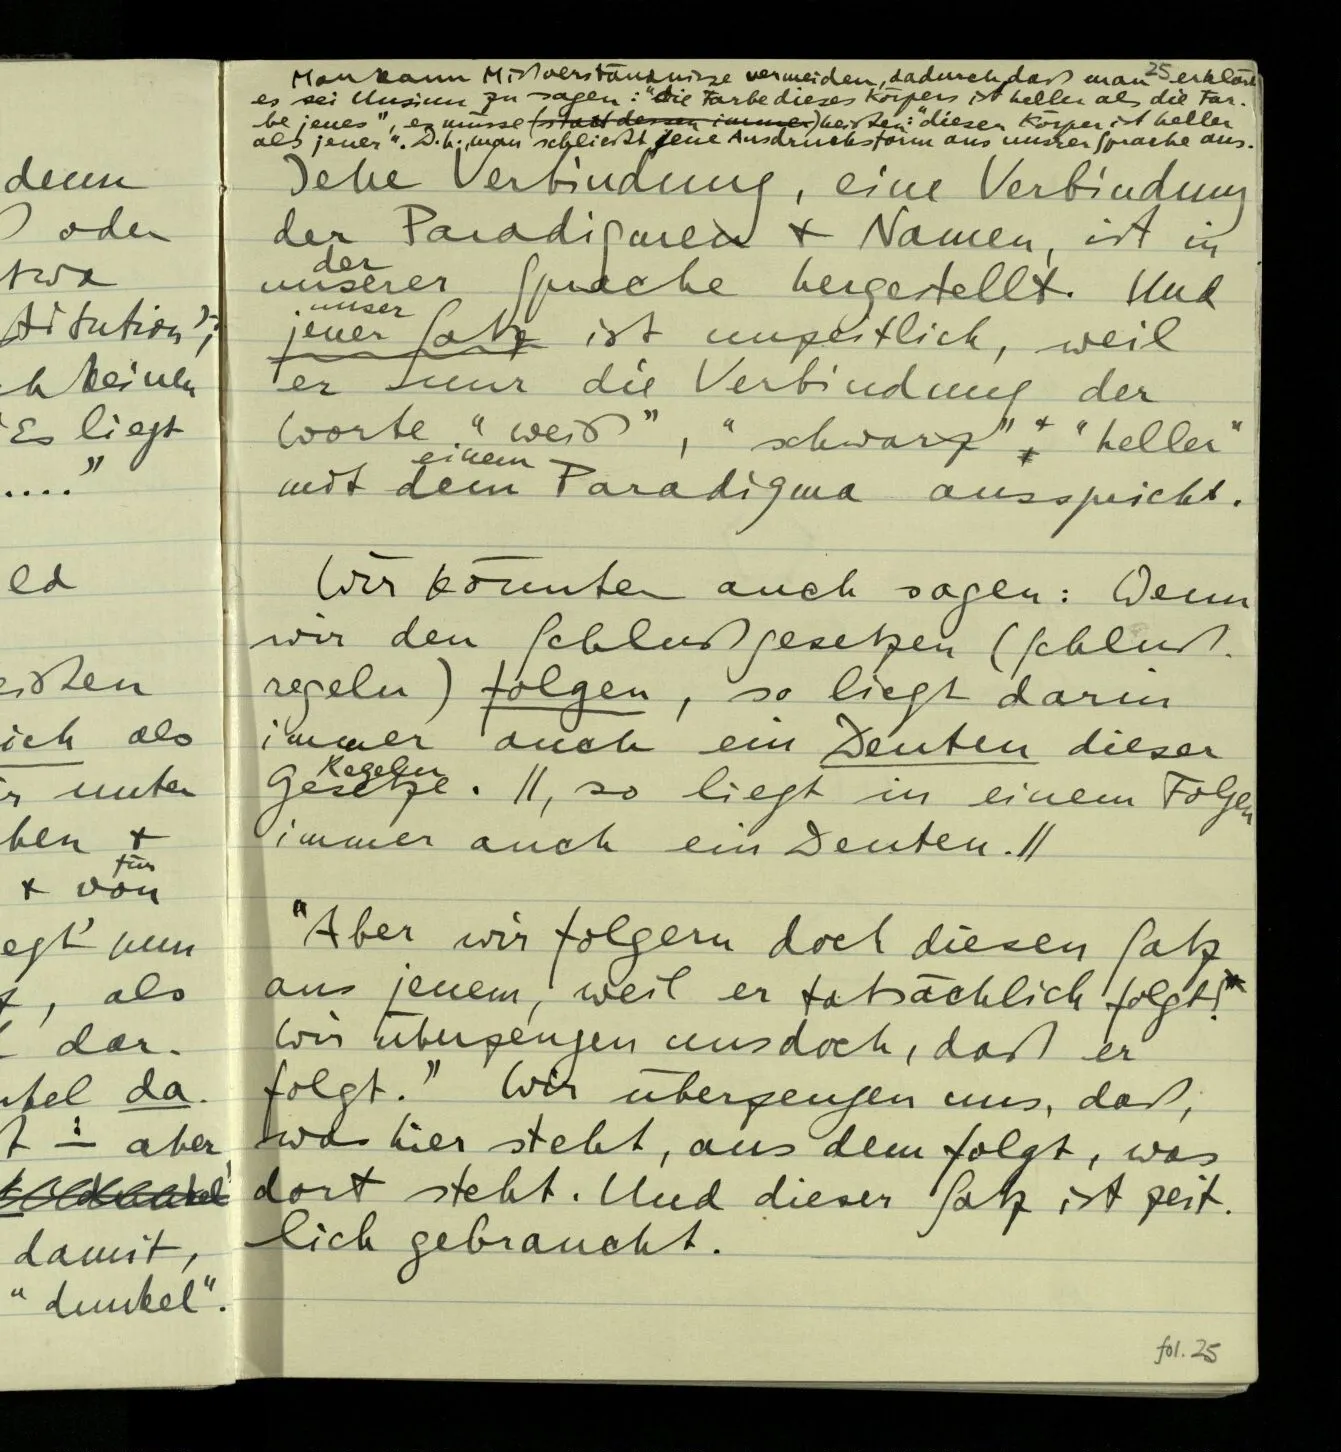 denn
oder
etwa
stitution";
keinen
"Es liegt
....."
eißen
ich als
unter
ben +
für
+ von
egt nun
, als
dar-
kel da.
aber
damit,
"dunkel".
25
Man kann Mißverständnisse vermeiden, dadurch daß man erklärt
es sei Unsinn zu sagen: "die Farbe dieses Körpers ist heller als die Far-
be jenes", es müsse (statt dessen immer) heißen: "dieser Körper ist heller
als jener". D.h., man schließt jene Ausdrucksform aus unsrer Sprache aus.
Jene Verbindung, eine Verbindung
der Paradigmen + Namen, ist in
der
unserer Sprache hergestellt. Und
unser
jener Satz ist unzeitlich, weil
er nur die Verbindung der
Worte "weiß", "schwarz" + "heller"
einem
mit dem Paradigma ausspricht.
Wir könnten auch sagen: Wenn
wir den Schlußgesetzen (Schluß-
regeln) folgen, so liegt darin
immer auch ein Deuten dieser
Regeln
Gesetze. //, so liegt in einem Folgen
immer auch ein Deuten. //
"Aber wir folgern doch diesen Satz
aus jenem, weil er tatsächlich folgt!
Wir überzeugen uns doch, daß er
folgt." Wir überzeugen uns, daß,
was hier steht, aus dem folgt, was
dort steht. Und dieser Satz ist zeit-
lich gebraucht.
fol. 25